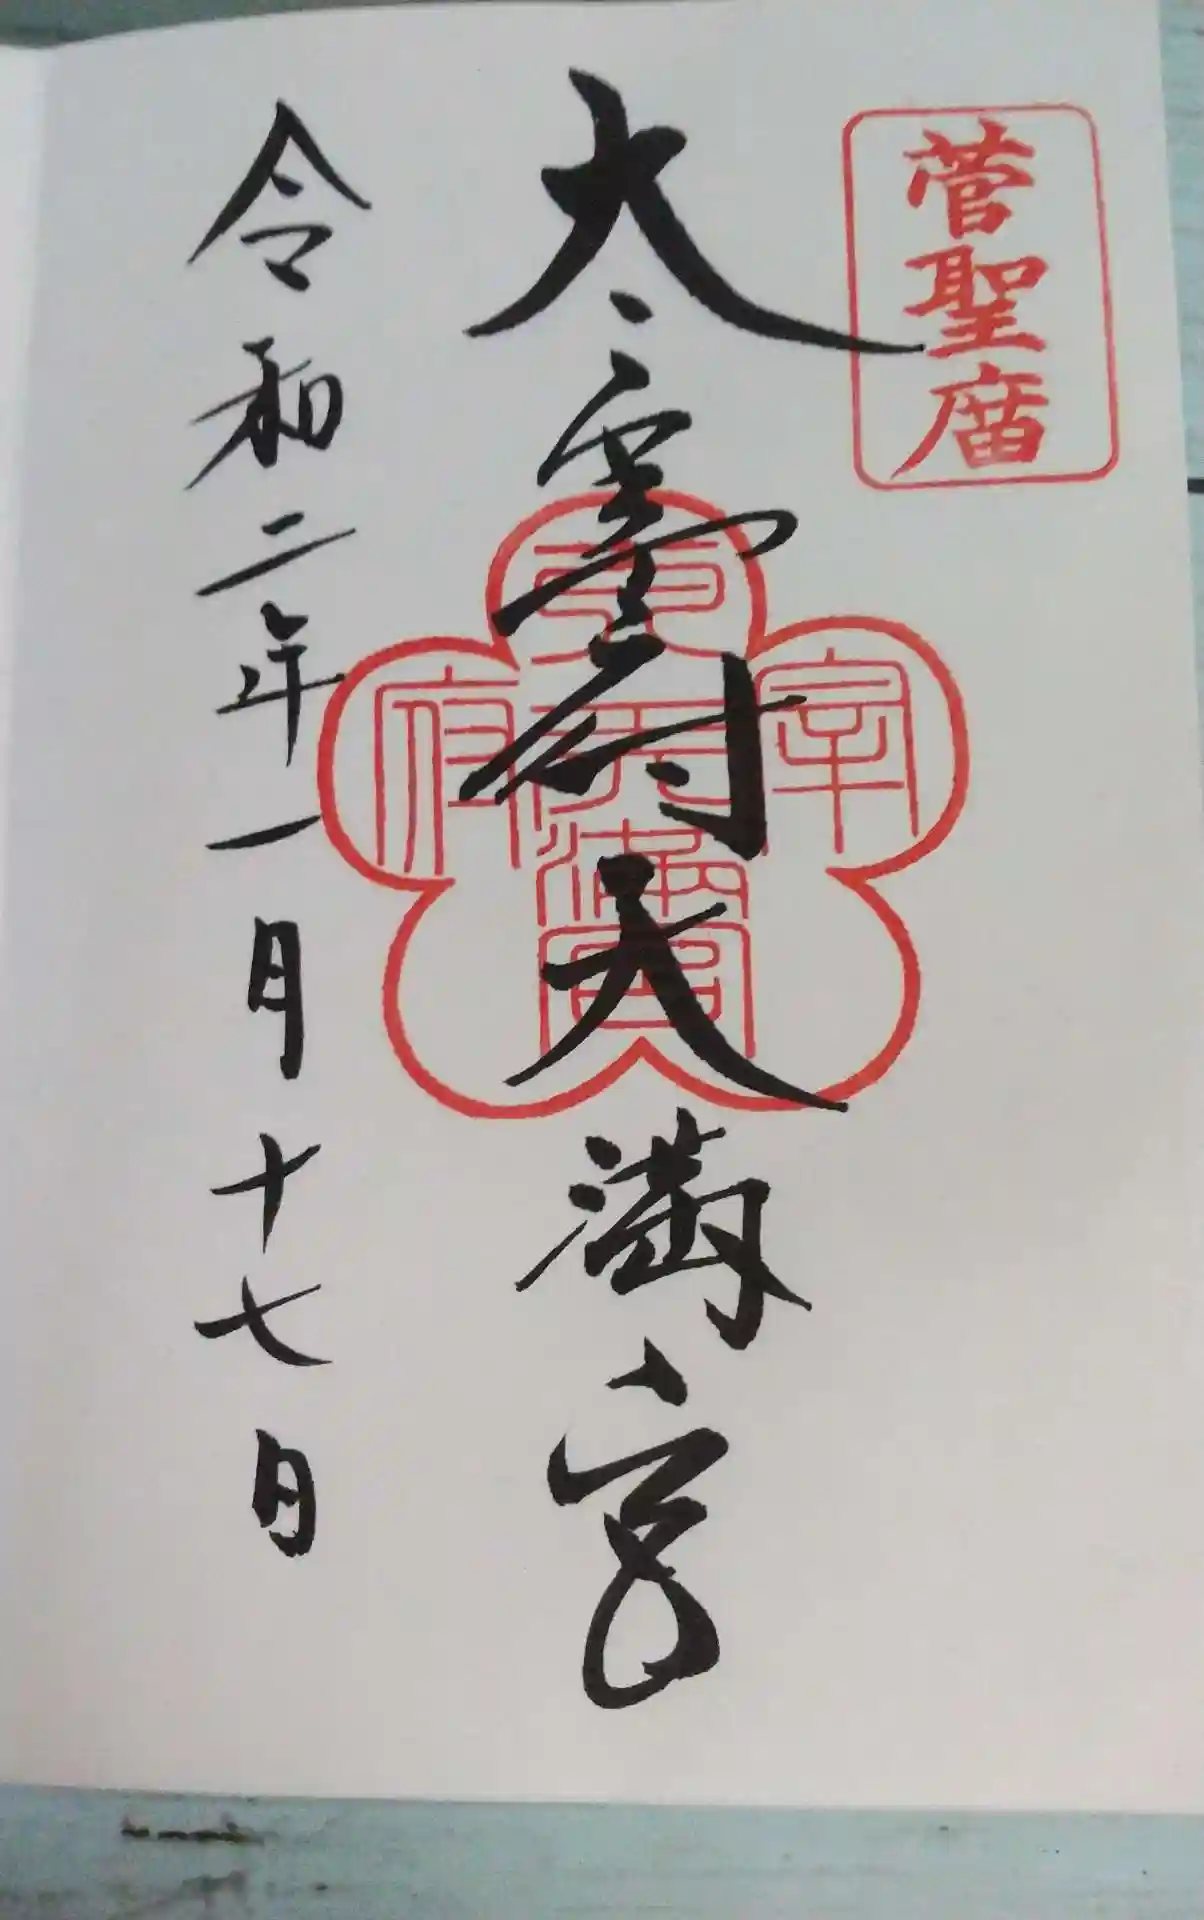 菅聖庿
太宰府天満宮
宰
府
天満宮
令和二年一月十七日